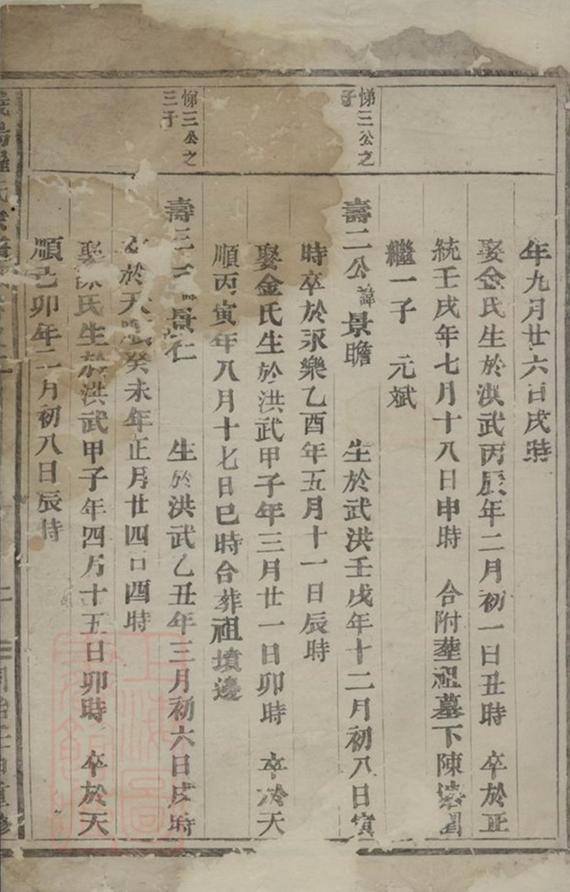 悌三公之
子
悌三公之
三子
年九月廿六日戌時
娶金氏生於洪武丙辰年二月初一日丑時 卒於正
統壬戌年七月十八日申時 合附葬祖墓下陳
繼一子 元斌
壽二公諱景瞻 生於武洪壬戌年十二月初八日寅
時卒於永樂乙酉年五月十一日辰時
娶金氏生於洪武甲子年三月廿一日卯時 卒於天
順丙寅年八月十七日巳時合葬祖墳邊
壽三公諱景仁 生於洪武乙丑年三月初六日戌時
卒於天順癸未年正月廿四日酉時
娶氏生於洪武甲子年四月十五日卯時 卒於天
順己卯年二月初八日辰時